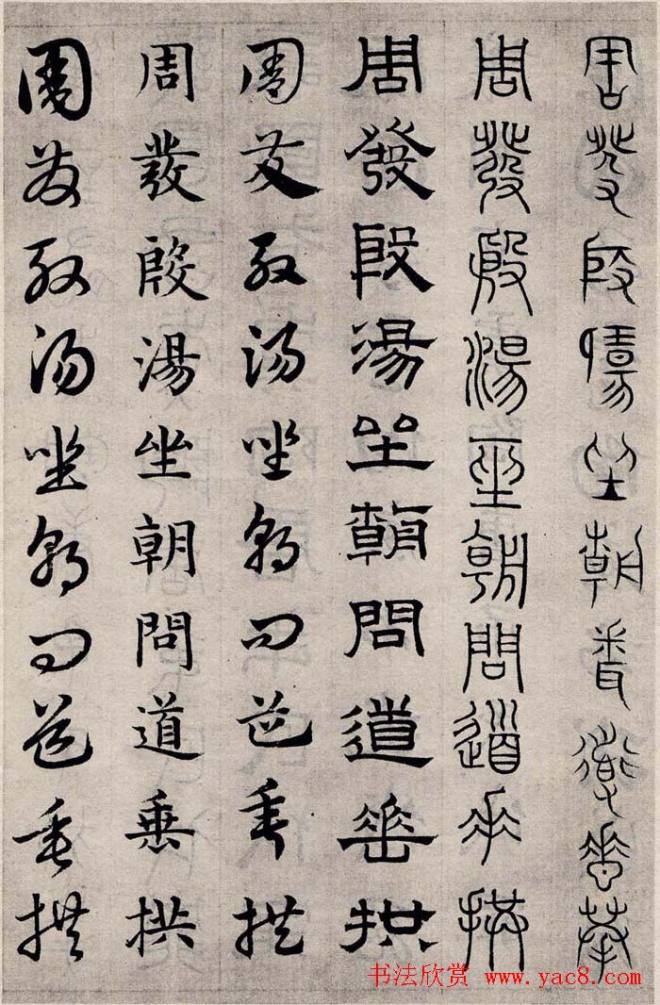 周發殷湯坐朝問道垂拱
周發殷湯坐朝問道垂拱
周發殷湯坐朝問道垂拱
周發殷湯坐朝問道垂拱
周發殷湯坐朝問道垂拱
周發殷湯坐朝問道垂拱
书法欣赏 www.yac8.com